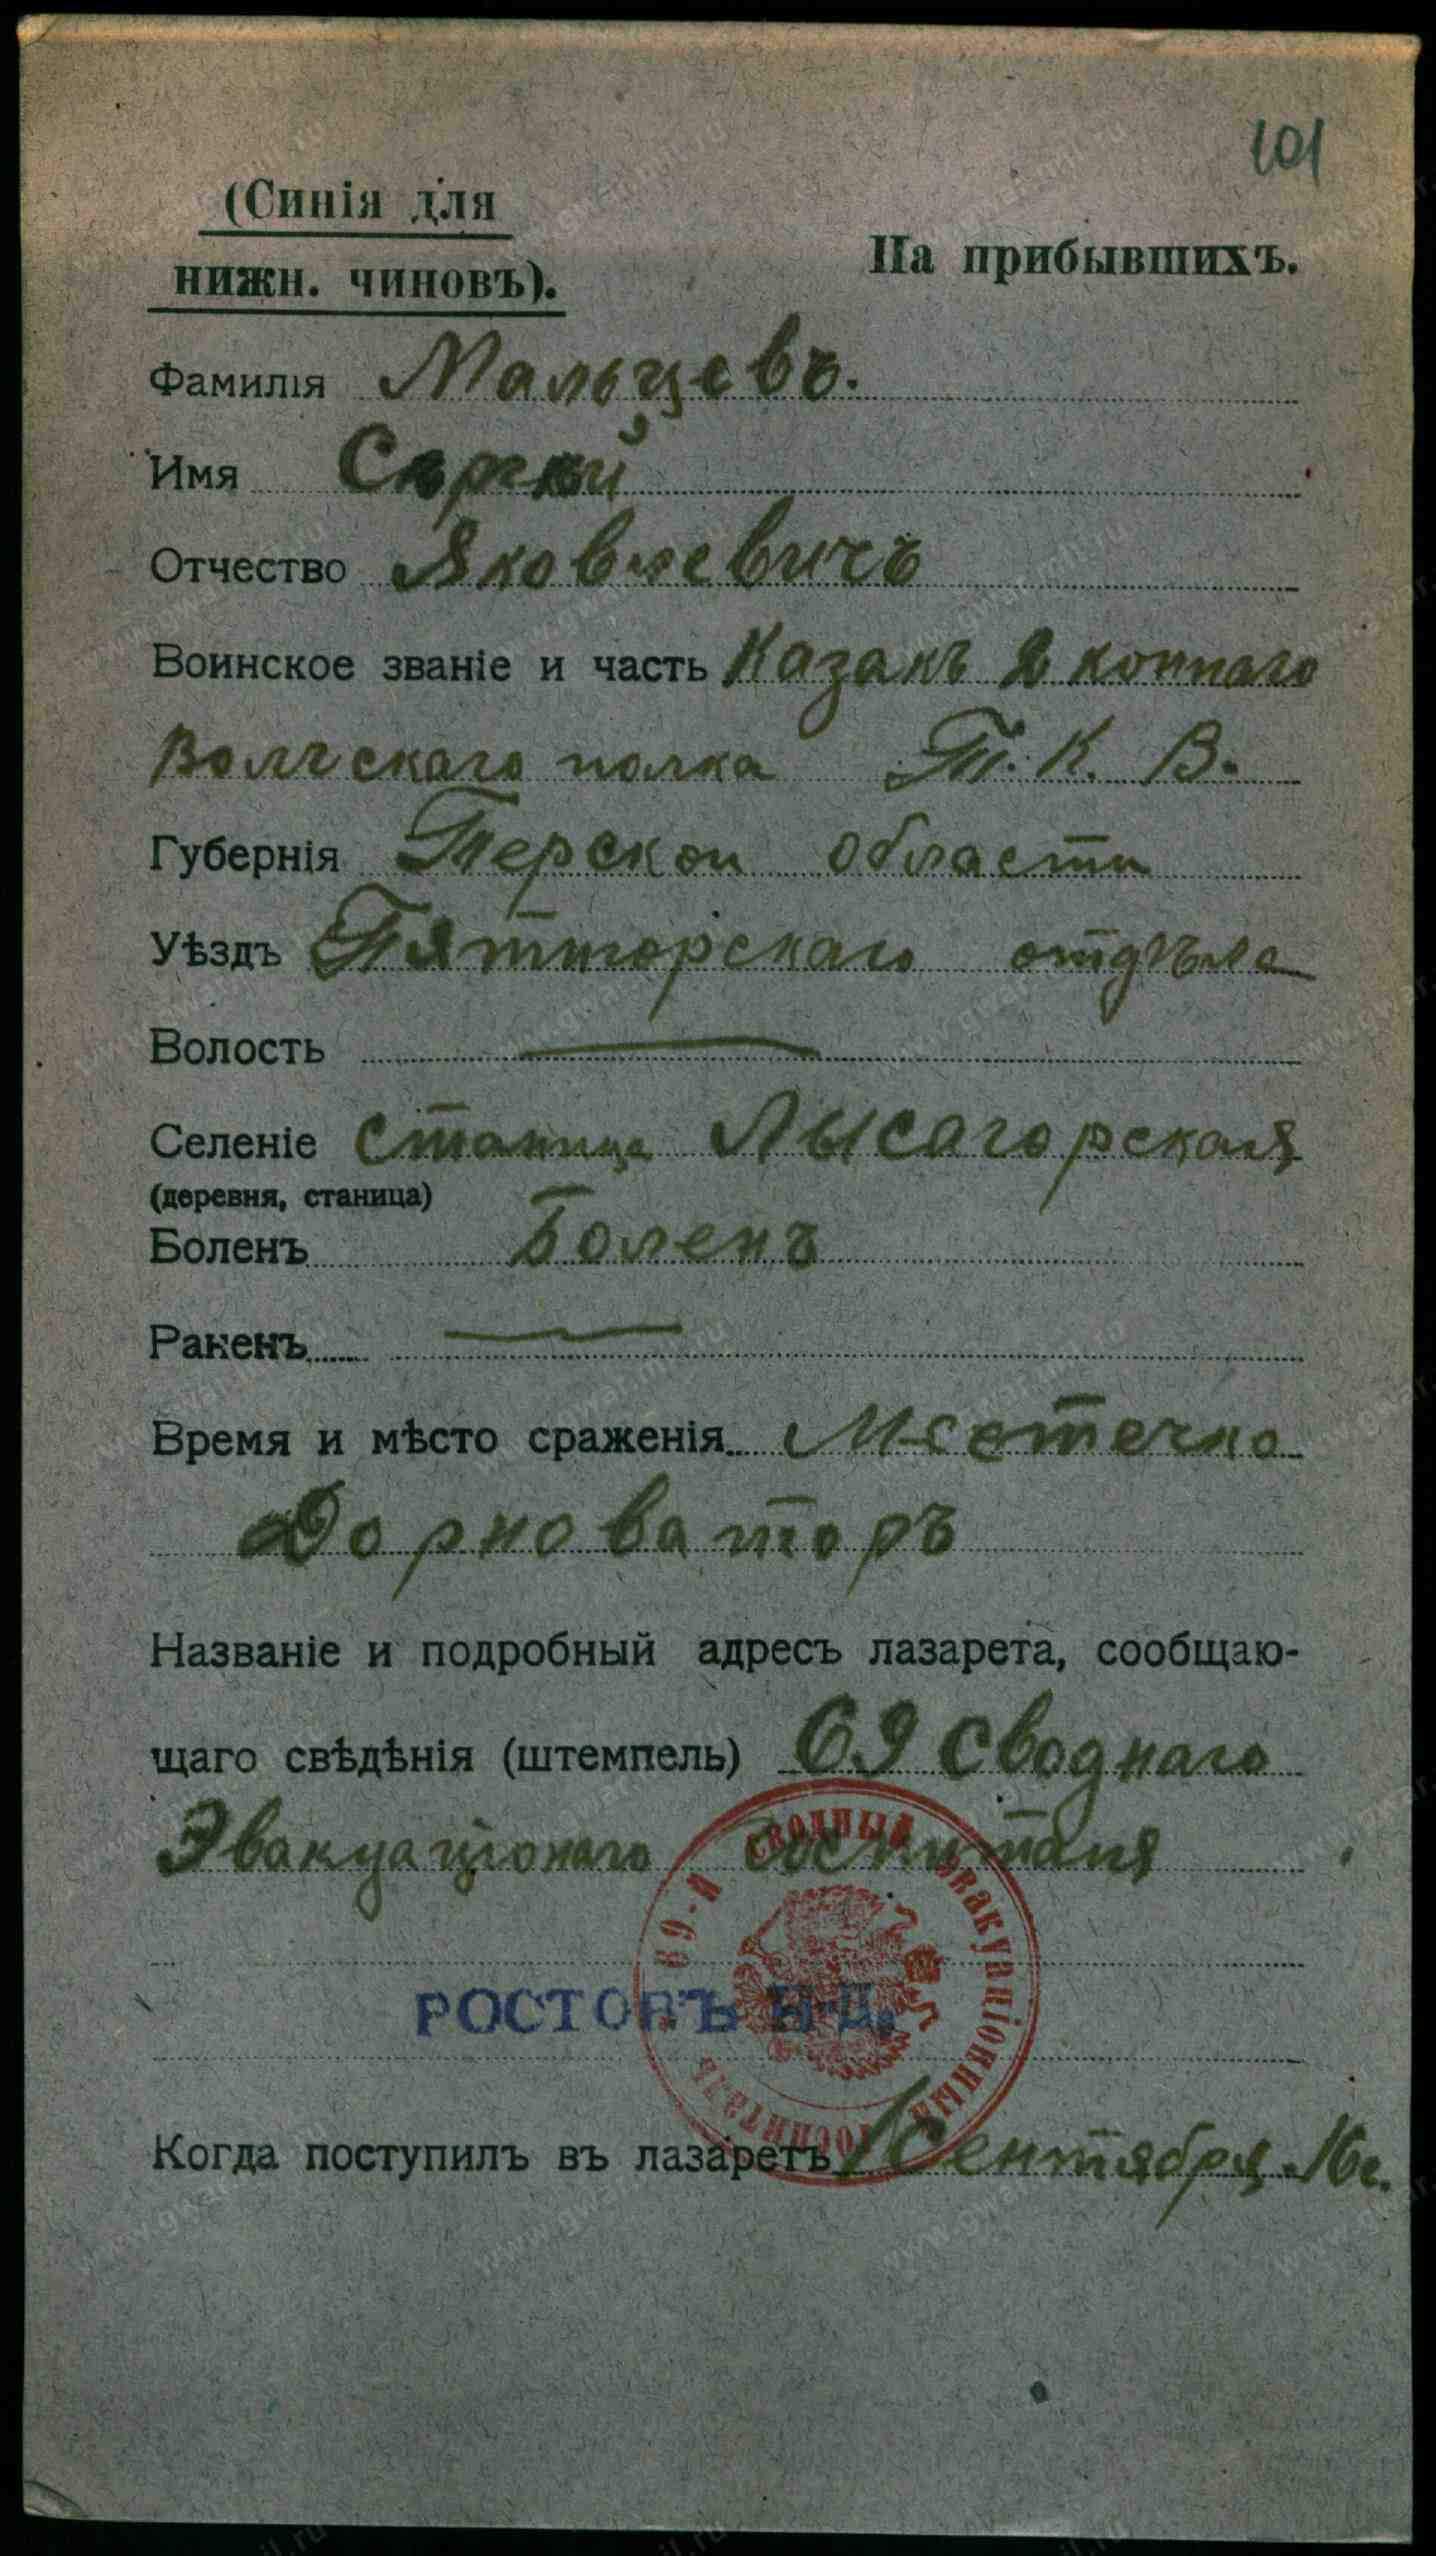 101
(Синія для
нижн. чиновъ).
На прибывшихъ.
Фамилія Мальцевъ.
Имя Сергей
Отчество Яковлевичъ
Воинское званіе и часть Казакъ 2 коннаго
Волгскаго полка Т. К. В.
Губернія Терской области
Уѣздъ Пятигорскаго отдѣла
Волость
Селеніе станица Лысагорская
(деревня, станица)
Боленъ Боленъ
Раненъ
Время и мѣсто сраженія Местечко
Дорноваторъ
Названіе и подробный адресъ лазарета, сообщаю-
щаго свѣдѣнія (штемпель) 69 сводного
Эвакуаціонаго госпиталя
69-й сводный эвакуаціонный госпиталь
РОСТОВЪ Н-Д.
Когда поступилъ въ лазаретъ 1 Сентября 16 г.